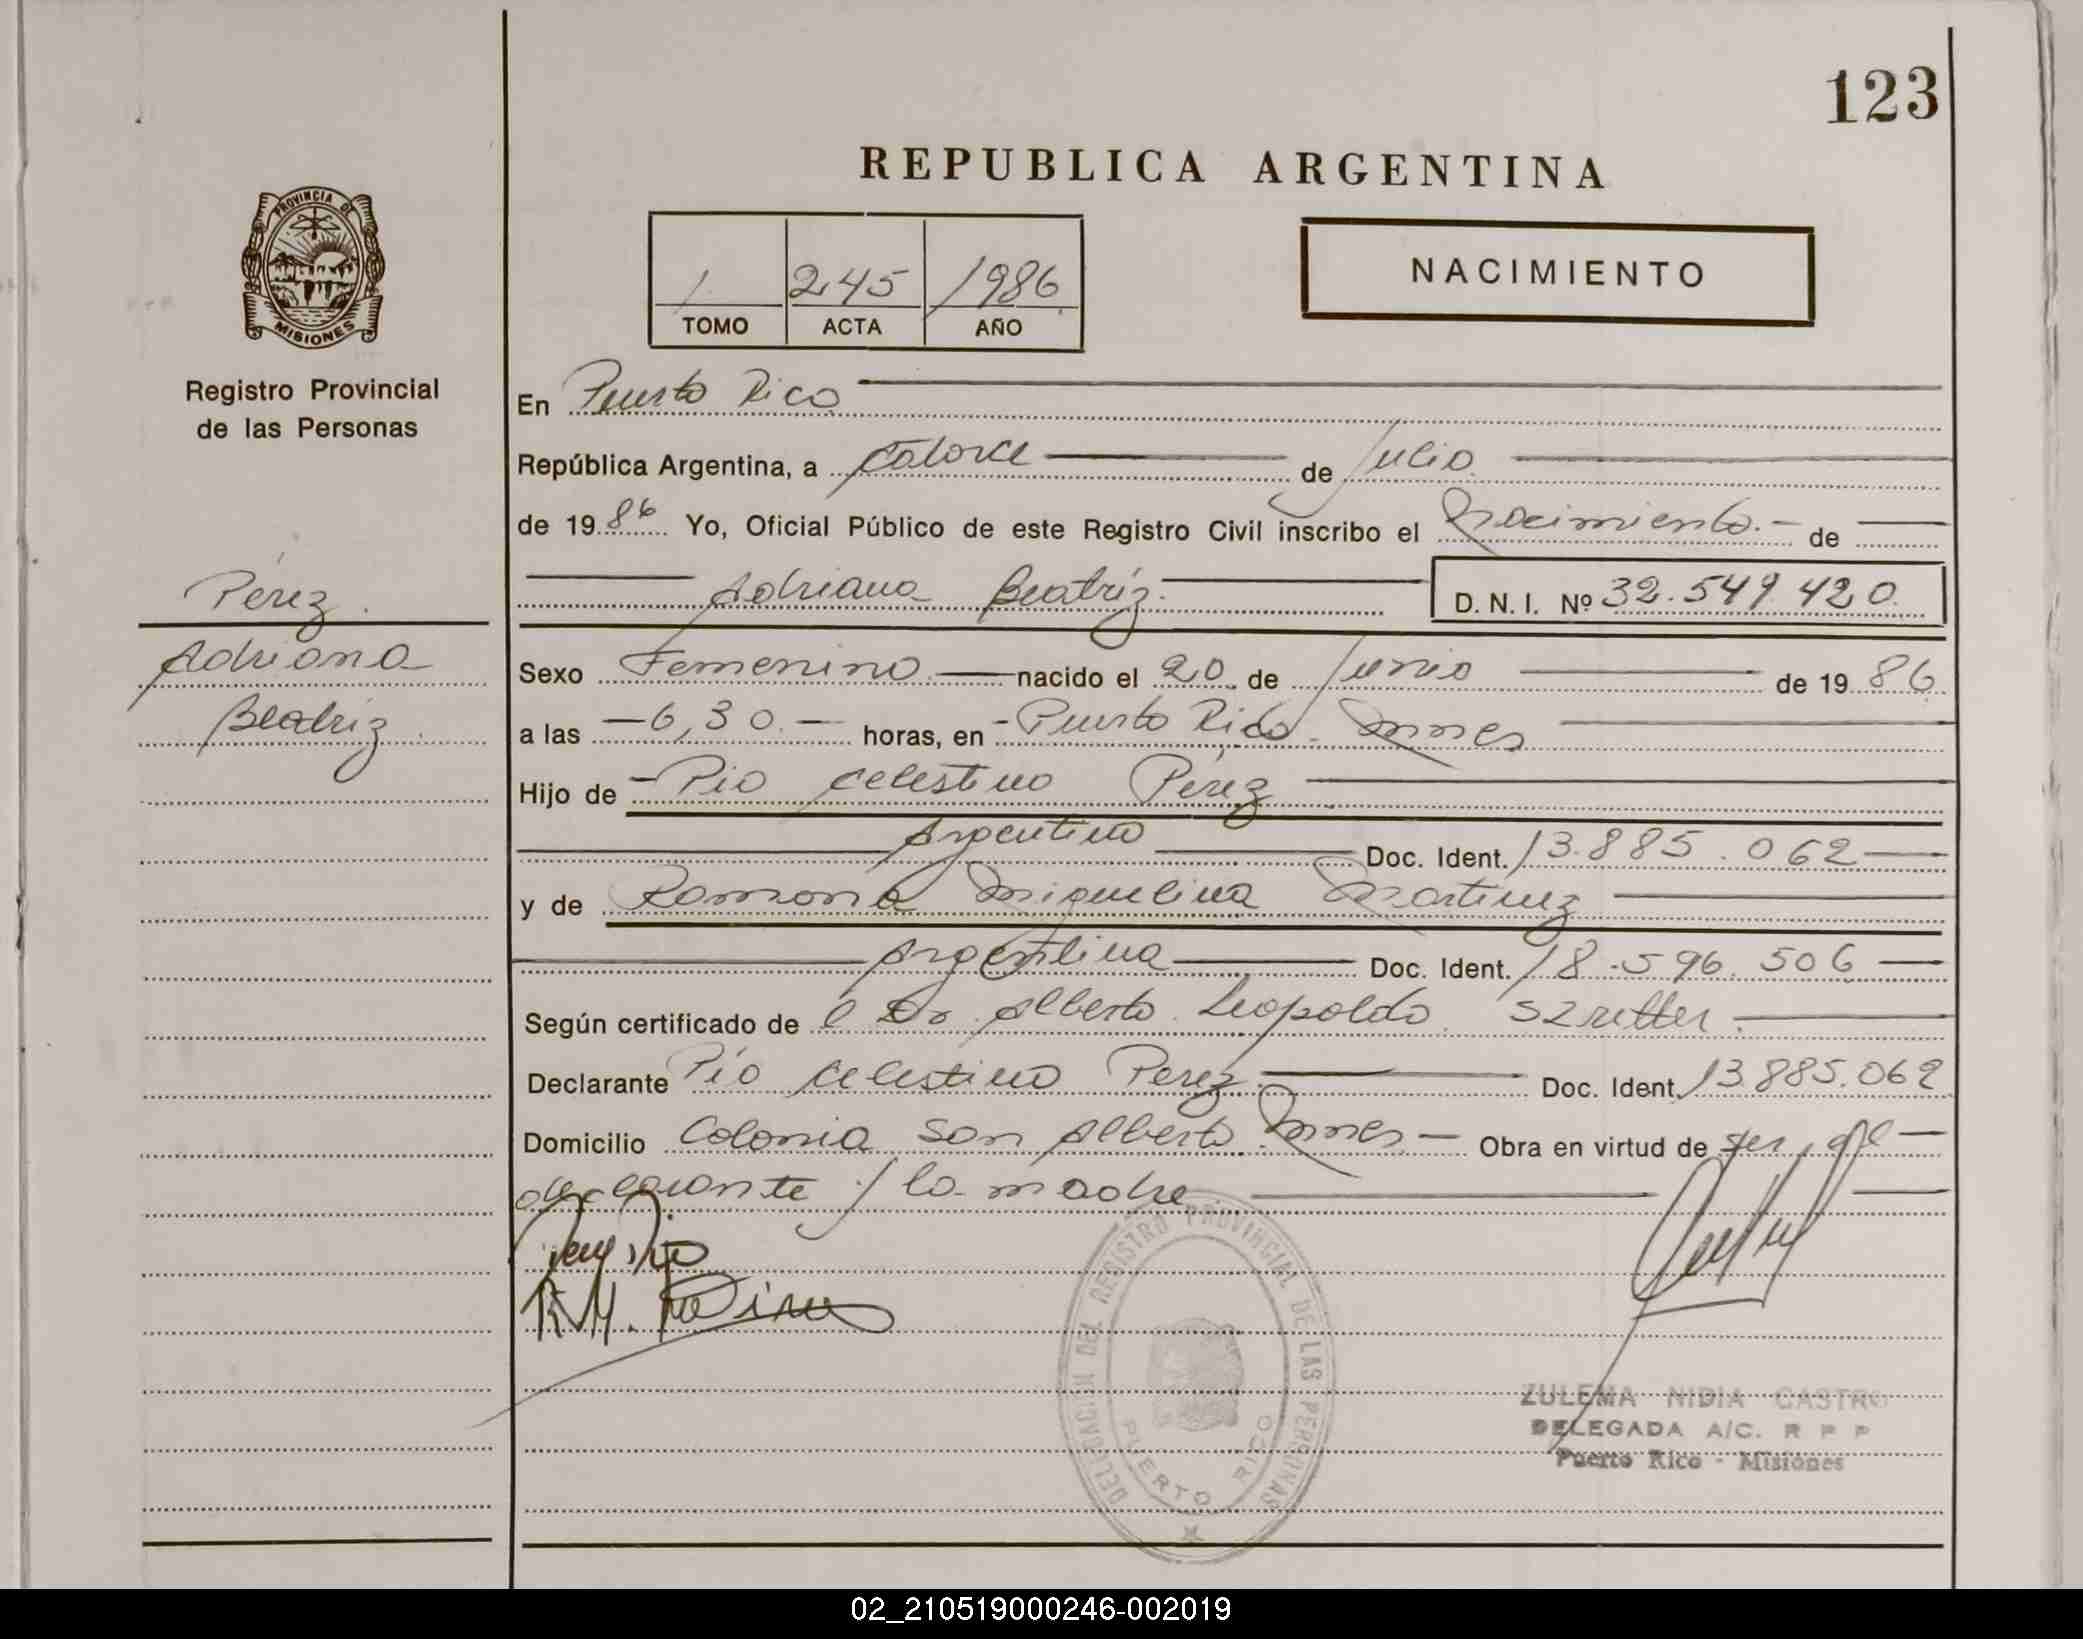 123
REPUBLICA ARGENTINA
PROVINCIA DE
MISIONES
Registro Provincial
de las Personas
1 245 1986
TOMO ACTA AÑO
NACIMIENTO
En Puerto Rico
República Argentina, a catorce de Julio
de 1986 Yo, Oficial Público de este Registro Civil inscribo el Nacimiento.- de
Adriana Beatriz. D. N. I. Nº 32.549 420
Pérez.
Adriana
Beatriz.
Sexo Femenino nacido el 20 de Junio de 1986
a las -6,30.- horas, en -Puerto Rico. Mnes
Hijo de -Pio Celestino Pérez
Argentino Doc. Ident. 13.885.062
y de Ramona Miguelina Martinez
Argentina Doc. Ident. 18.596.506
Según certificado de el Dr. Alberto Leopoldo Szretter.
Declarante Pío Celestino Perez. Doc. Ident. 13.885.062
Domicilio Colonia San Alberto. Mnes- Obra en virtud de ser el
declarante y la madre
R.M.
DELEGACION DEL REGISTRO PROVINCIAL DE LAS PERSONAS
PUERTO RICO
ZULEMA NIDIA CASTRO
DELEGADA A/C. R P P
Puerto Rico - Misiones
02_210519000246-002019